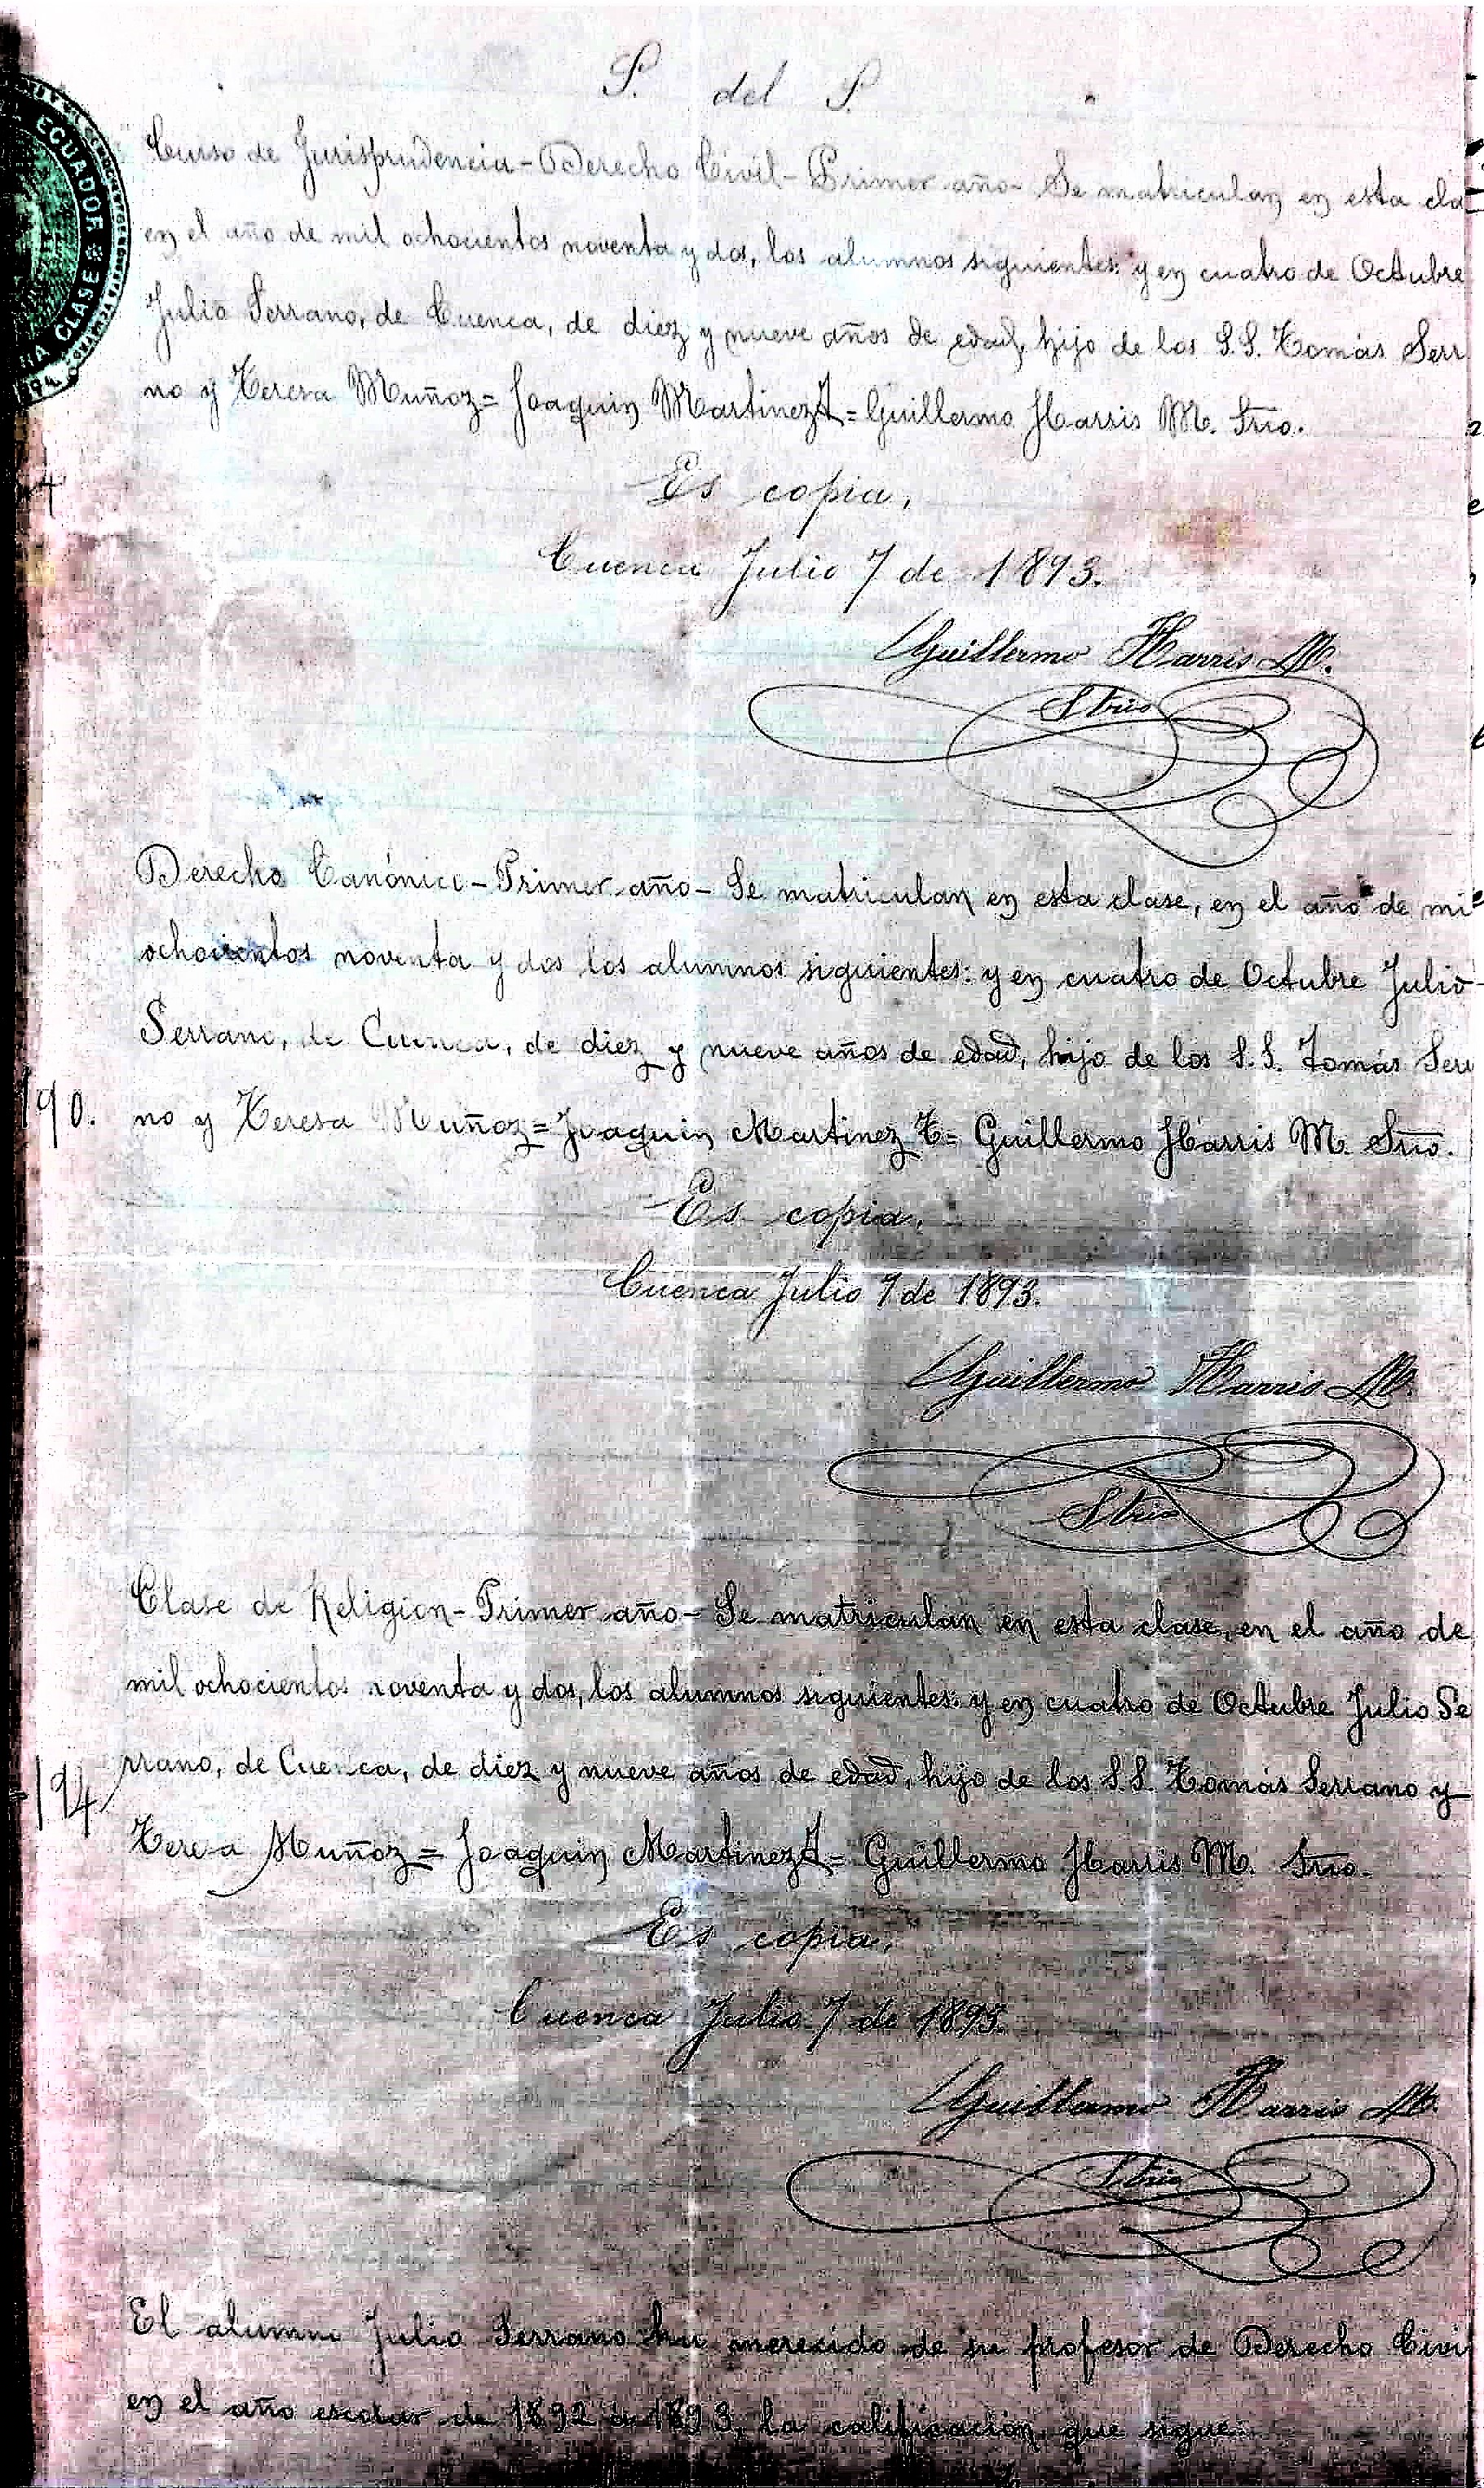 S. del S.
ECUADOR
CLASE
Curso de Jurisprudencia - Derecho Civil - Primer año - Se matriculan en esta cla
en el año de mil ochocientos noventa y dos, los alumnos siguientes: y en cuatro de Octubre
Julio Serrano, de Cuenca, de diez y nueve años de edad, hijo de los S.S. Tomás Serr
no y Teresa Muñoz = Joaquin Martinez T. = Guillermo Harris M. Srio.
Es copia,
Cuenca Julio 7 de 1893.
Guillermo Harris M.
Strio
Derecho Canónico - Primer año - Se matriculan en esta clase, en el año de mil
ochocientos noventa y dos los alumnos siguientes: y en cuatro de Octubre Julio
Serrano, de Cuenca, de diez y nueve años de edad, hijo de los S.S. Tomás Serr
190. no y Teresa Muñoz = Joaquin Martinez T = Guillermo Harris M. Srio.
Es copia,
Cuenca Julio 7 de 1893.
Guillermo Harris M.
Strio
Clase de Religion - Primer año - Se matriculan en esta clase, en el año de
mil ochocientos noventa y dos, los alumnos siguientes: y en cuatro de Octubre Julio Se
194 rrano, de Cuenca, de diez y nueve años de edad, hijo de los S.S. Tomás Serrano y
Teresa Muñoz = Joaquin Martinez T. = Guillermo Harris M. Srio.
Es copia,
Cuenca Julio 7 de 1893.
Guillermo Harris M.
Strio
El alumno Julio Serrano ha merecido de su profesor de Derecho Civi
en el año escolar de 1892 á 1893, la calificacion que sigue: